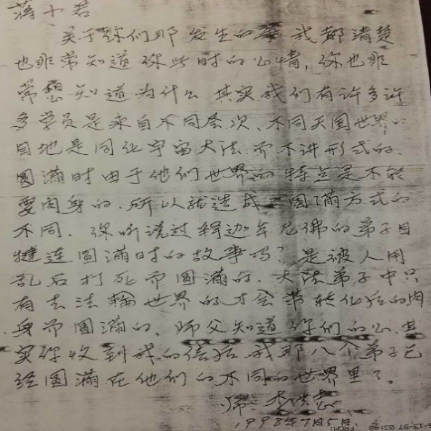 蒋小君
关于你们那发生的事我都清楚
也非常知道你此时的心情,你也非
常想知道为什么其实我们有许多许
多学员是来自不同层次、不同天国世界
目地是同化宇宙大法而不讲形式的。
圆满时由于他们世界的特点是不
要肉身的,所以就造成圆满方式的
不同。你听说过释迦牟尼佛的弟子目
犍连圆满时的故事吗?是被人用
乱石打死而圆满的,大法弟子中只
有去法轮世界的才会带转化后的肉
身而圆满的、师父知道你们的心,其
实你收到我的信后我那八个弟子已
经圆满在他们的不同的世界里了。
师 李洪志
1998年7月5日